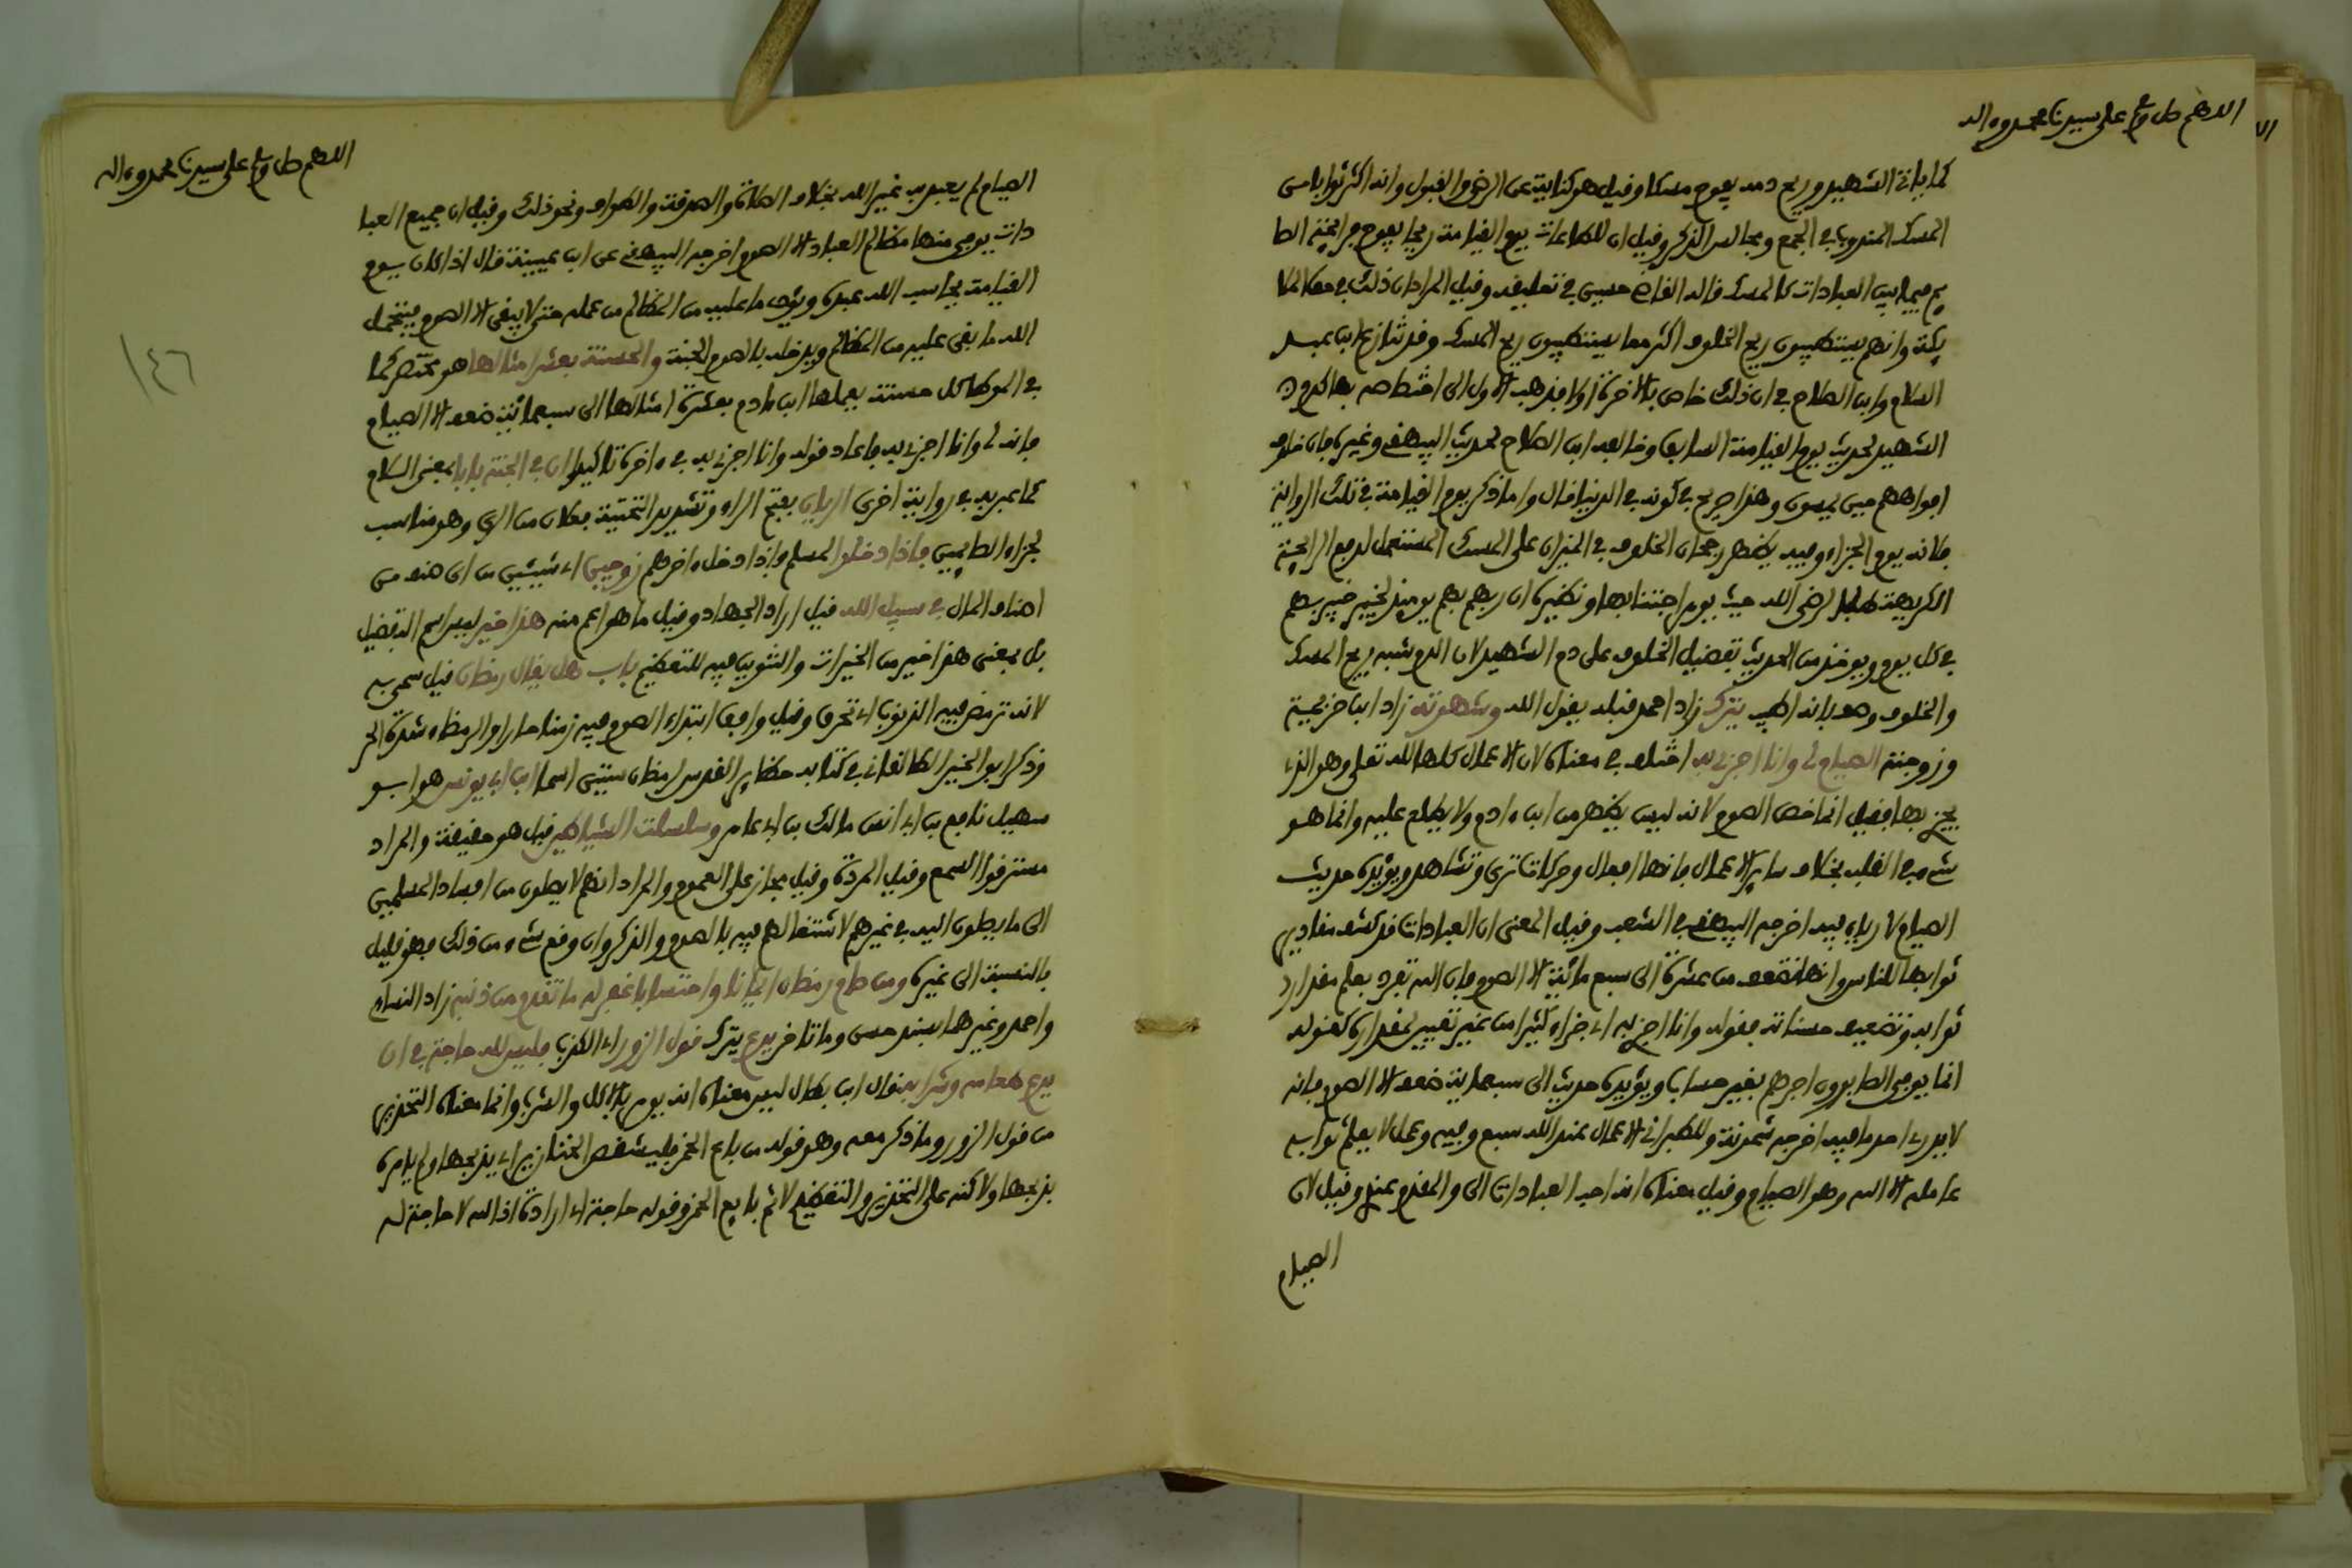 اللهم صل وسلم على سيدنا محمد وءاله
كما ياتي الشهيد وريح دمه يفوح مسكا وقيل هو كناية عن الرضى والقبول وانه اكثر ثوابا من
المسك المندوب في الجمع ومجالس الذكر وقيل ان للطاعات يوم القيامة ريحا يفوح فرائحة الصا
يم فيها بين العبادات كالمسك قاله القاضي حسين في تعليقه وقيل المراد ان ذلك في حق الملا
يكة وانهم يستطيبون ريح الخلوف اكثر مما يستطيبون ريح المسك وقد تنازع ابن عبد
السلام وابن الصلاح في ان ذلك خاص بالاخرة او لا فذهب الاول الى اختصاصه بها كدم
الشهيد لحديث يوم القيامة السابق وخالفه ابن الصلاح لحديث البيهقي وغيره فان خلوف
افواههم حين يمسون وهذا صريح في كونه في الدنيا قال واما ذكر يوم القيامة في تلك الرواية
فلانه يوم الجزاء وفيه يظهر رجحان الخلوف في الميزان على المسك المستعمل لدفع الرائحة
الكريهة طلبا لرضى الله حيث يومر باجتنابها ونظيره ان ربهم بهم يوميذ لخبير خبير بهم
في كل يوم ويوخذ من الحديث تفضيل الخلوف على دم الشهيد لان الدم شبه ريحه بالمسك
والخلوف وصف بانه اطيب يترك زاد احمد قبله يقول الله وشهوته زاد ابن خزيمة
وزوجته الصيام لي وانا اجزي به اختلف في معناه لان الاعمال كلها لله تعلى وهو الذي
يجزي بها فقيل انما خص الصوم لانه ليس يظهر من ابن ءادم ولا يطلع عليه وانما هو
شيء في القلب بخلاف ساير الاعمال فانها افعال وحركات ترى وتشاهد ويؤيده حديث
الصيام لا رياء فيه اخرجه البيهقي في الشعب وقيل المعنى ان العبادات قد كشف مقادير
ثوابها للناس وانها تضعف من عشرة الى سبع مائة الا الصوم فان الله تفرد بعلم مقدار
ثوابه وتضعيف حسناته فقوله وانا اجزي به اي جزاء كثيرا من غير تعيين لمقداره كقوله
انما يوفى الصابرون اجرهم بغير حساب ويؤيده حديث الى سبعماية ضعف الا الصوم فانه
لا يدري احد ما فيه اخرجه سمويه وللطبراني الاعمال عند الله سبع وفيه وعمل لا يعلم ثوابه
عامله الا الله وهو الصيام وقيل معناه انه احب العبادات الي والمقدم عندي وقيل لان
الصيام
اللهم صل وسلم على سيدنا محمد وءاله
الصيام لم يعبد به غير الله بخلاف الصلاة والصدقة والطواف ونحو ذلك وقيل ان جميع العبا
دات يوفى منها مظالم العباد الا الصوم اخرجه البيهقي عن ابن عيينة قال اذا كان يوم
القيامة يحاسب الله عبده ويؤدي ما عليه من المظالم من عمله حتى لا يبقى الا الصوم فيتحمل
الله ما بقي عليه من المظالم ويدخله بالصوم الجنة والحسنة بعشر امثالها هو مختصر كما
في الموطا كل حسنة يعملها ابن ءادم بعشرة امثالها الى سبعمائة ضعف الا الصيام
فانه لي وانا اجزي به فاعاد قوله وانا اجزي به في ءاخره تاكيدا ان في الجنة بابا بمعنى السلام
كما عبر به في رواية اخرى الريان بفتح الراء وتشديد التحتية فعلان من الري وهو مناسب
لجزاء الصايمين فاذا دخلوا لمسلم فاذا دخل ءاخرهم زوجين اي شيئين من اي صنف من
اصناف المال في سبيل الله قيل اراد الجهاد وقيل ما هو اعم منه هذا خير ليس اسم التفضيل
بل بمعنى هذا خير من الخيرات والتنوين فيه للتعظيم باب هل يقال رمضان قيل سمي به
لانه ترمض فيه الذنوب اي تحرق وقيل وافق ابتداء الصوم فيه زمنا حارا والرمضاء شدة الحر
وذكر ابو الخير الطالقاني في كتابه حظاير القدس لرمضان ستين اسما ابن ابي يونس هو ابو
سهيل نافع بن ابي انس مالك بن ابي عامر وسلسلت الشياطين قيل هو حقيقة والمراد
مسترقوا السمع وقيل المردة وقيل مجاز على العموم والمراد انهم لا يصلون من افساد المسلمين
الى ما يصلون اليه في غيرهم لاشتغالهم فيه بالصوم والذكر وان وقع شيء من ذلك فهو قليل
بالنسبة الى غيره ومن صام رمضان ايمانا واحتسابا غفر له ما تقدم من ذنبه زاد النساءي
واحمد وغيرهما بسند حسن وما تاخر يدع يترك قول الزور اي الكذب فليس لله حاجة في ان
يدع طعامه وشرابه قال ابن بطال ليس معناه انه يومر بالاكل والشرب وانما معناه التحذير
من قول الزور وما ذكر معه وهو كقوله من باع الخمر فليشقص الخنازير اي يذبحها ولم يامره
بذبحها ولاكنه على التحذير والتعظيم لاثم بايع الخمر وقوله حاجة اي ارادة اذ الله لا حاجة له
١٤٦